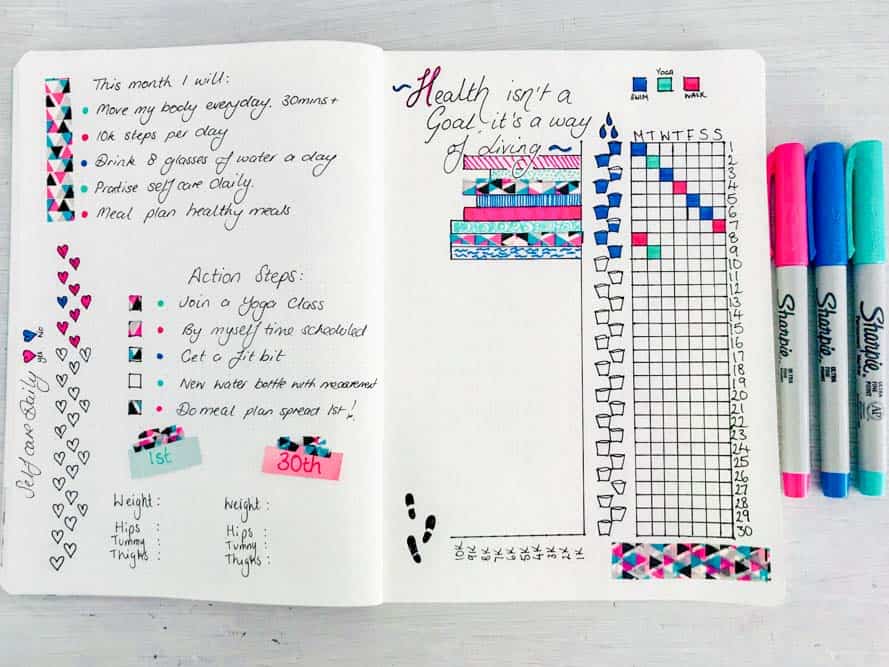 This month I will:
Move my body everyday. 30mins+
10k steps per day
Drink 8 glasses of water a day
Practise self care daily.
Meal plan healthy meals
Action Steps:
Join a Yoga Class
By myself time scheduled
Get a fit bit
New water bottle with measurement
Do meal plan spread 1st!
yes no
Self care Daily
1st
30th
Weight:
Hips :
Tummy :
Thighs :
Weight:
Hips :
Tummy :
Thighs :
Health isn't a
Goal it's a way
of Living
YOGA
SWIM
WALK
M T W T F S S
1
2
3
4
5
6
7
8
9
10
11
12
13
14
15
16
17
18
19
20
21
22
23
24
25
26
27
28
29
30
10K 9K 8K 7K 6K 5K 4K 3K 2K 1K
Sharpie
ULTRA
FINE
POINT
Sharpie
ULTRA
FINE
POINT
Sharpie
ULTRA
FINE
POINT
AP